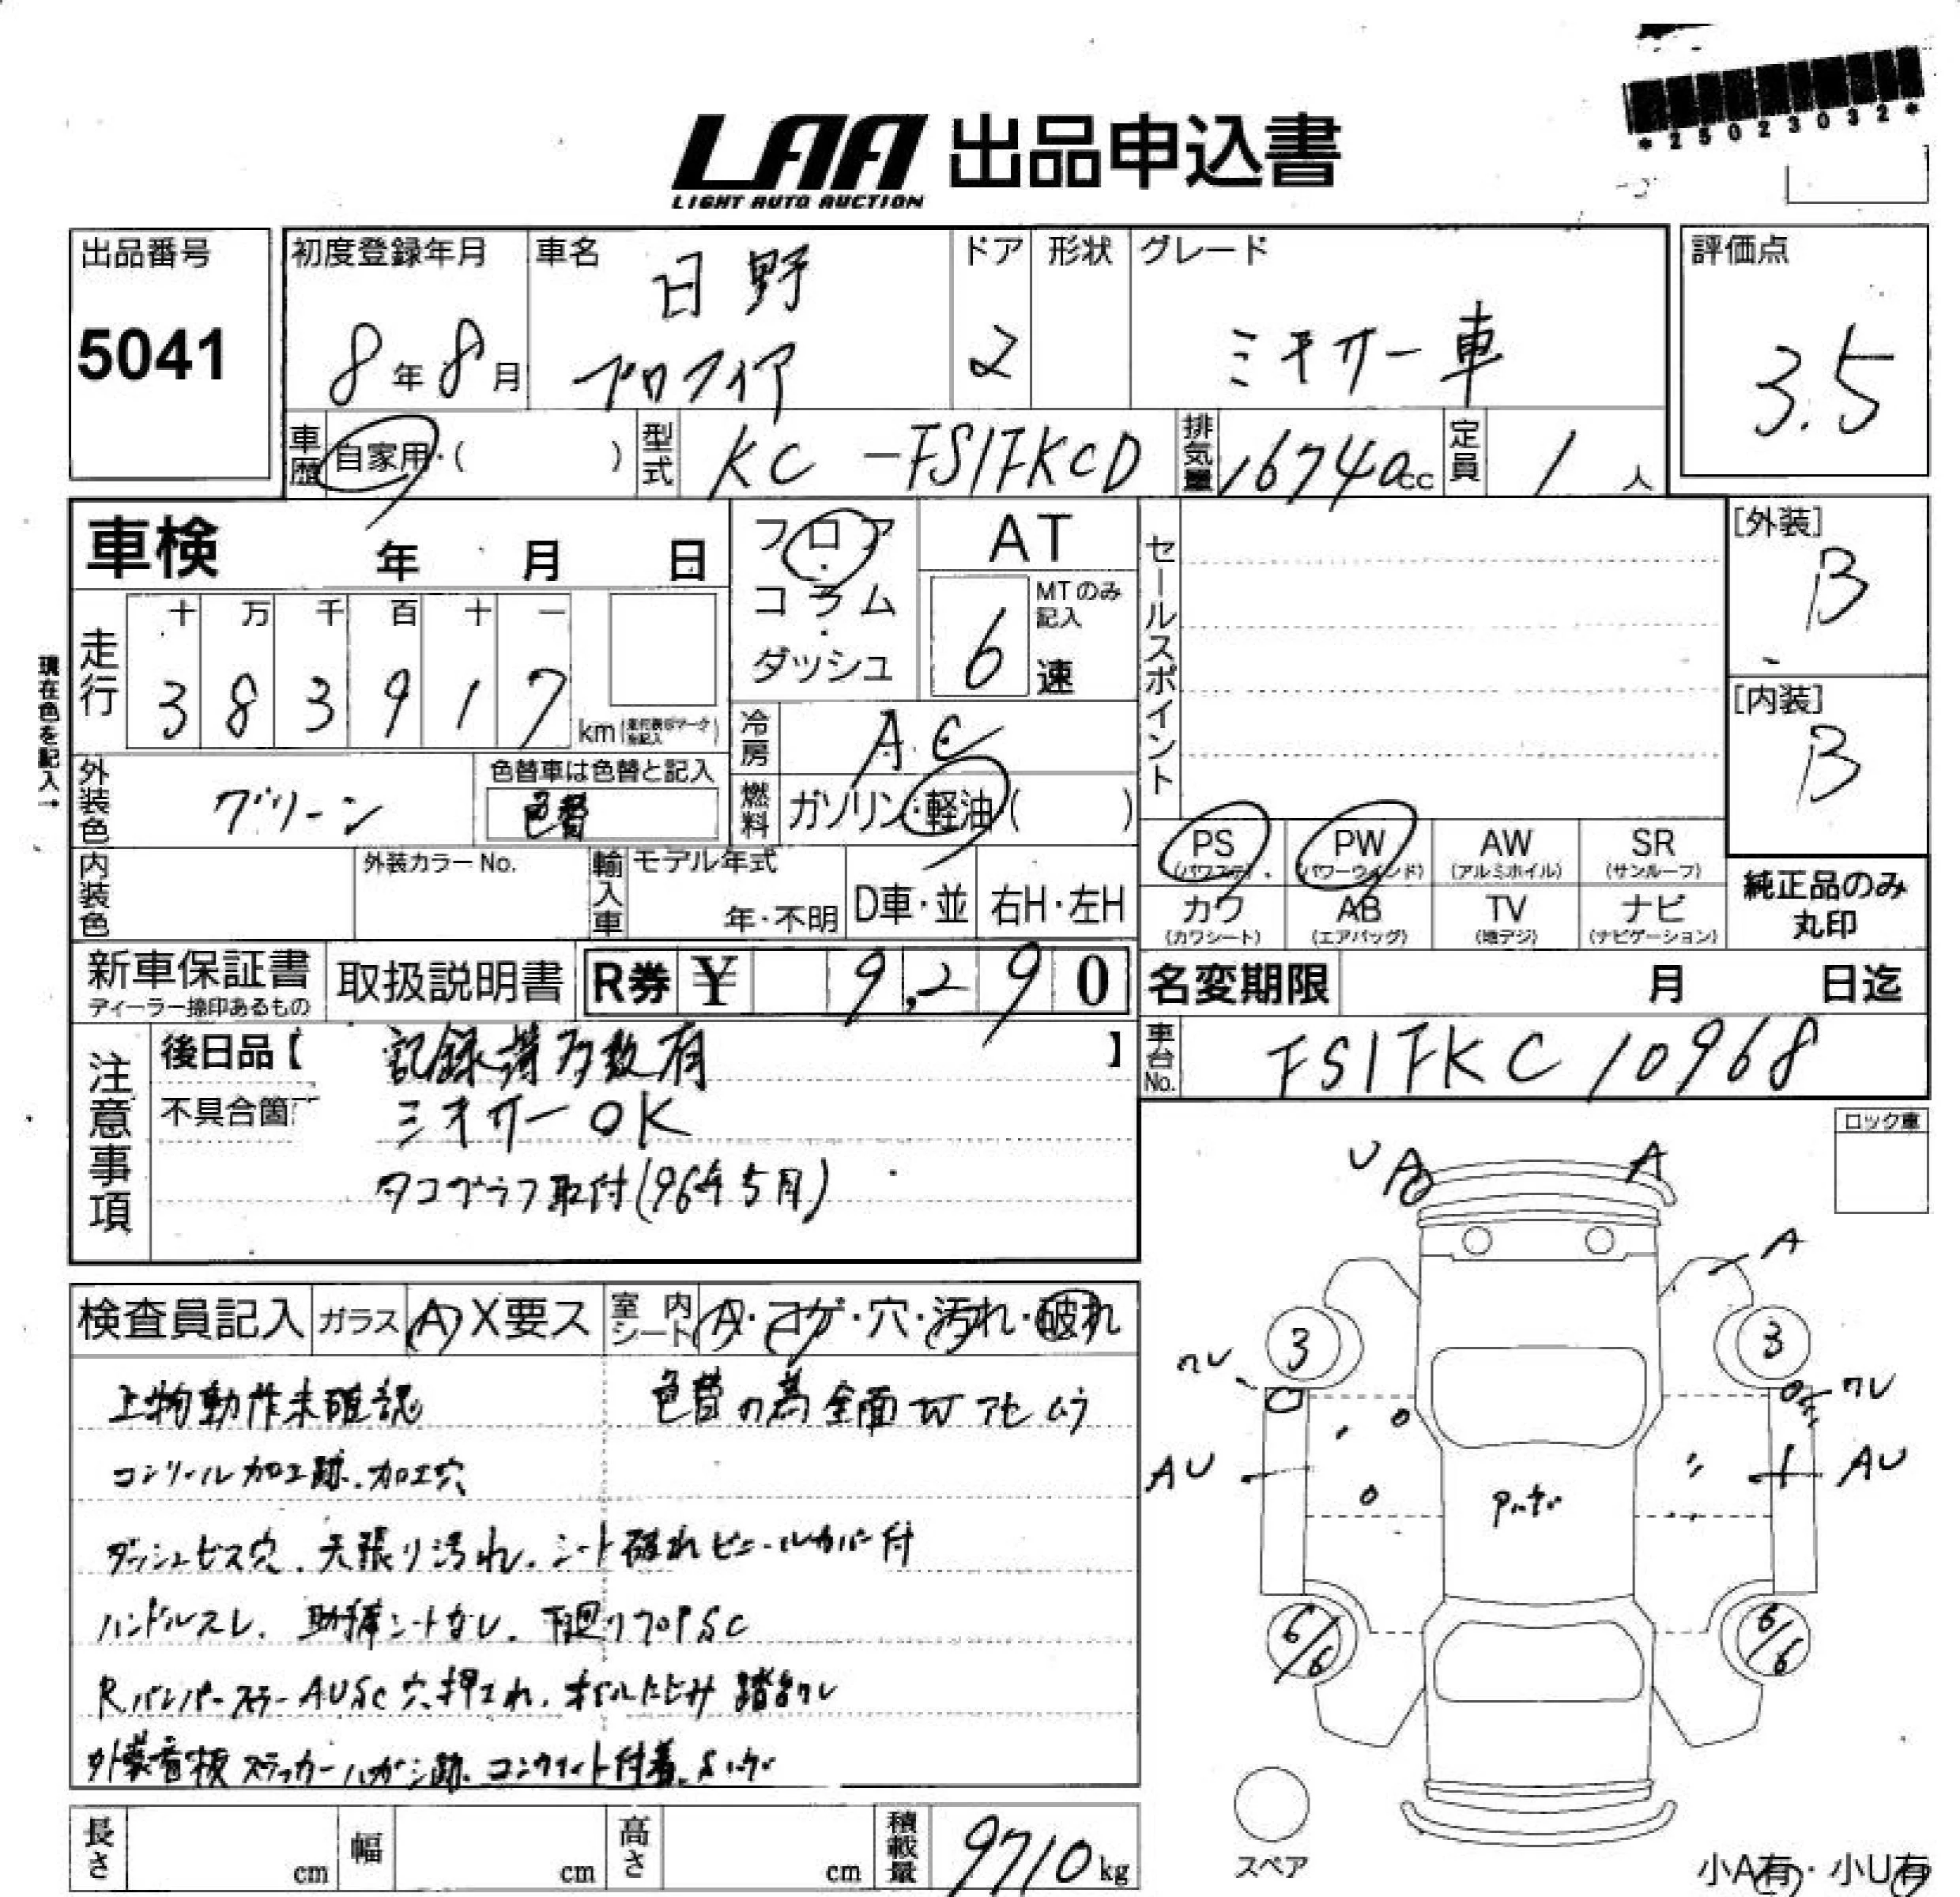 *25023032*
LAA 出品申込書
LIGHT AUTO AUCTION
出品番号
5041
初度登録年月
8年8月
車名
日野
プロフィア
ドア
2
形状
グレード
ミキサー車
評価点
3.5
車歴
自家用・( )
型式
KC-FS1FKCD
排気量
16740cc
定員
1人
車検 年 月 日
フロア
・
コラム
・
ダッシュ
AT
MTのみ
記入
6速
セールスポイント
[外装]
B
[内装]
B
現在色を記入→
走行
十 万 千 百 十 一
3 8 3 9 1 7 km
冷房
AC
外装色
グリーン
色替車は色替と記入
色替
燃料
ガソリン・軽油( )
PS
(パワステ)
PW
(パワーウインド)
AW
(アルミホイル)
SR
(サンルーフ)
内装色
外装カラーNo.
輸入車
モデル年式
年・不明
D車・並
右H・左H
カワ
(カワシート)
AB
(エアバッグ)
TV
(地デジ)
ナビ
(ナビゲーション)
純正品のみ
丸印
新車保証書
ディーラー捺印あるもの
取扱説明書
R券 ¥ 9,290
名変期限 月 日迄
車台No.
FS1FKC10968
注意事項
後日品【 記録簿多数有 】
不具合箇
ミキサーOK
タコグラフ取付(96年5月)
ロック車
検査員記入
ガラス A X要ス
室内
シート
A・コゲ・穴・汚れ・破れ
上物動作未確認
色替の為全面 アセ ムラ
コンソール加工跡、加工穴
ダッシュビス穴、天張り汚れ、シート破れビニールカバー付
ハンドルスレ、助手席シートなし、下廻り SC
Rバンパーステー AUSC 穴 踏
外装看板ステッカーハガシ跡、コンクリート付着
U A
A
A
3
3
ワレ
ワレ
AU
AU
6/6
6/6
スペア
小A有・小U有
長さ cm
幅 cm
高さ cm
積載量
9710kg